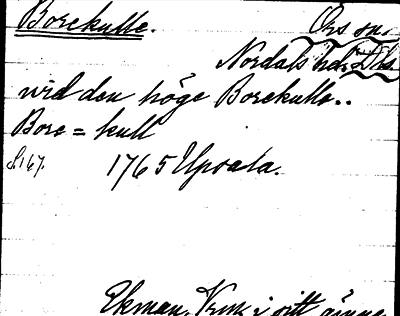 Borekulle. Ørs sn.
Nordals hd. Dls
vid den höge Borekulle..
Bore = kull
S. 167. 1765 Upsala.
Ekman, i sitt